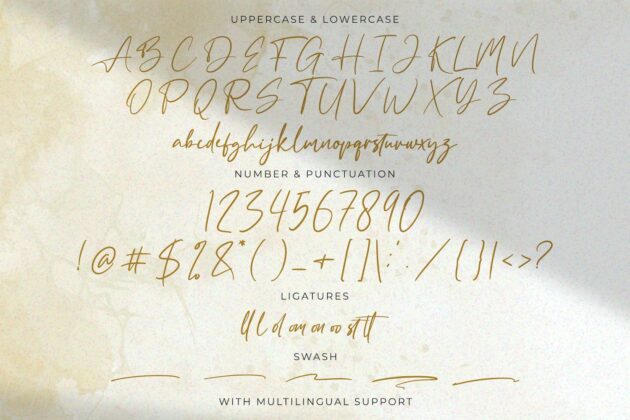 UPPERCASE & LOWERCASE
A B C D E F G H I J K L M N
O P Q R S T U V W X Y Z
abcdefghijklmnopqrstuvwxyz
NUMBER & PUNCTUATION
1234567890
! @ # $ % & * ( ) _ + [ ] \ : . / { } | < > ?
LIGATURES
ll l d am on oo st tt
SWASH
WITH MULTILINGUAL SUPPORT